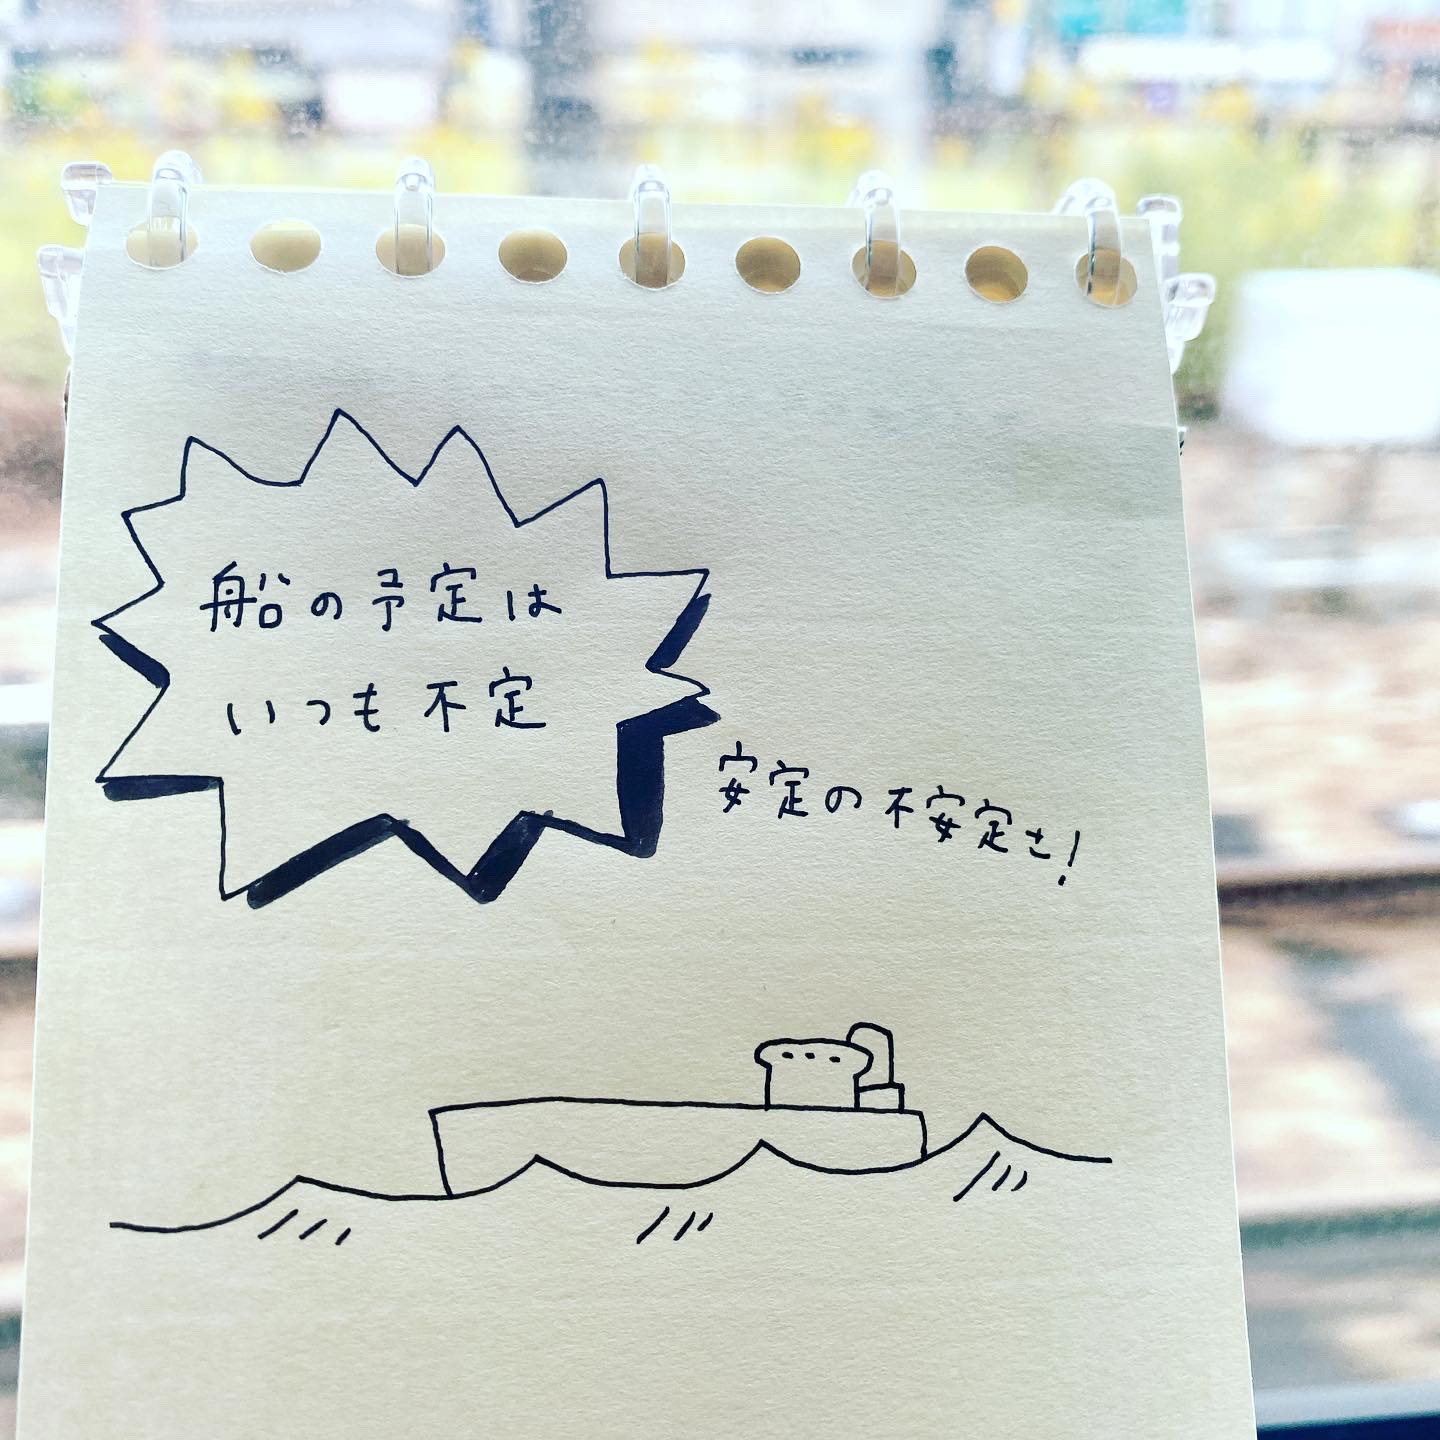 船の予定は
いつも不定
安定の不安定さ!